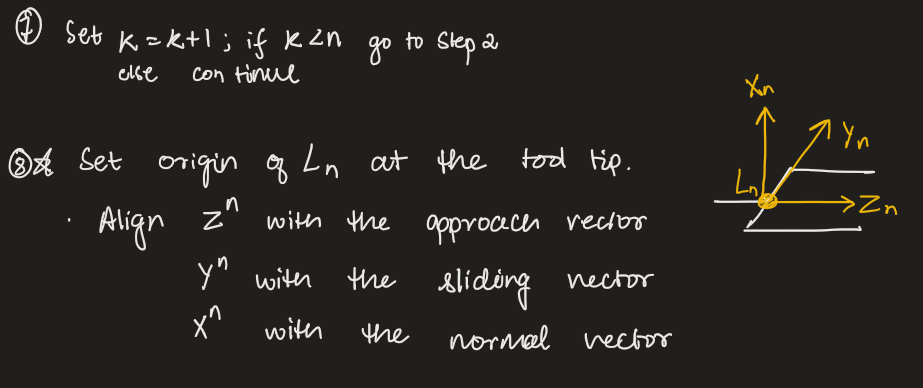 ⑦ Set k = k+1 ; if k < n go to step 2
else continue
⑧ Set origin of Ln at the tool tip.
· Align zⁿ with the approach vector
yⁿ with the sliding vector
xⁿ with the normal vector
Xn
Yn
Ln
Zn